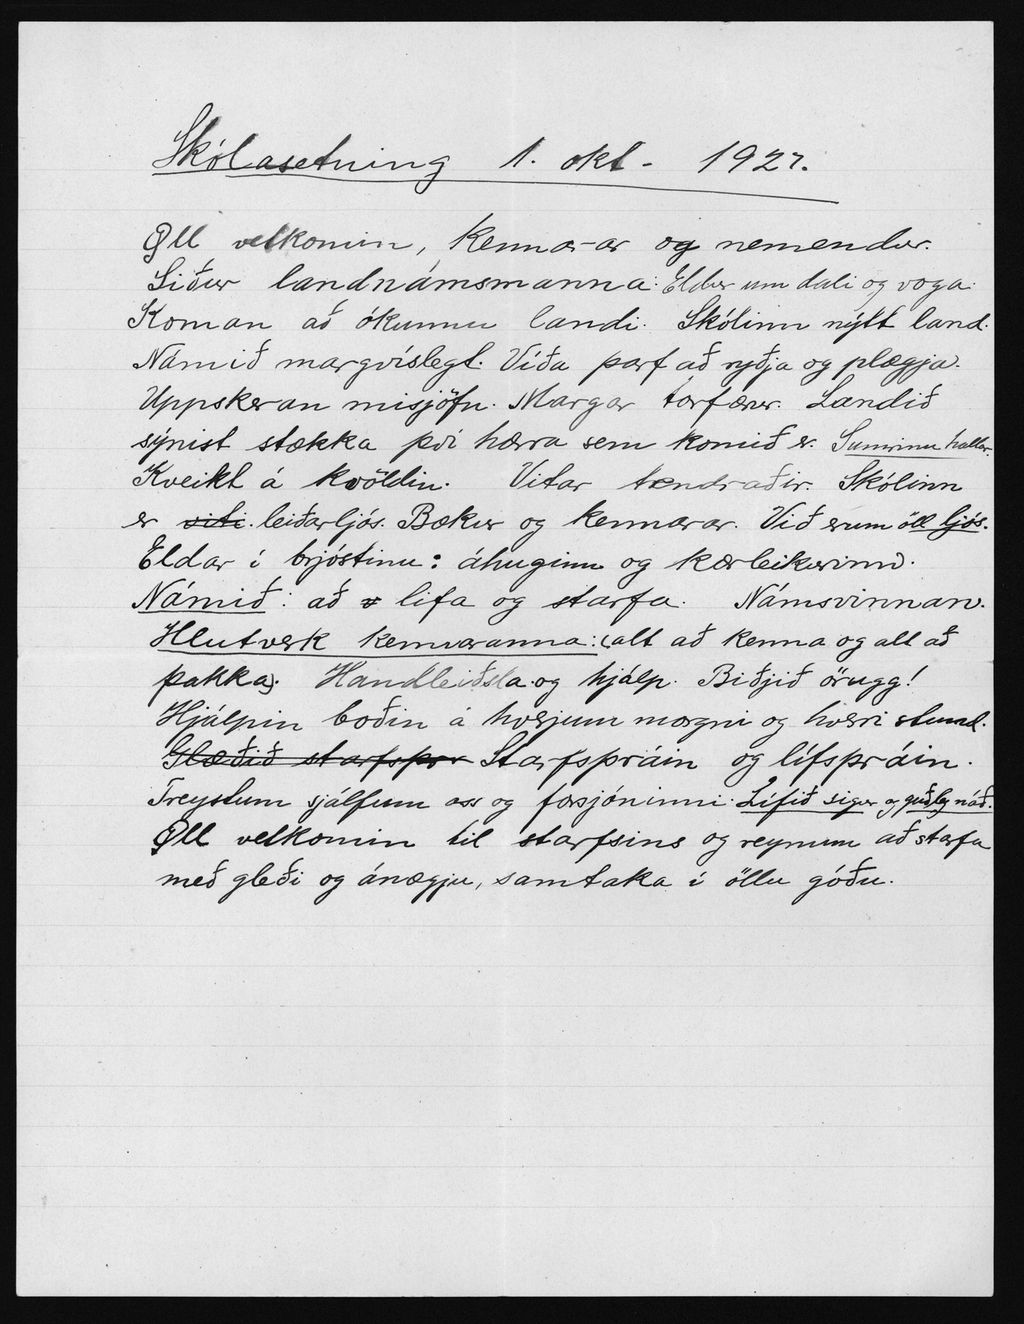 Skólasetning 1. okt. 1927.
Öll velkomin, kennarar og nemendur.
Siður landnámsmanna: Eldur um dali og voga.
Koman að ókunnu landi. Skólinn nýtt land.
Námið margvíslegt. Víða þarf að ryðja og plægja.
Uppskeran misjöfn. Margar torfærur. Landið
sýnist stækka því hærra sem komið er. Sumrinu hallar.
Kveikt á kvöldin. Vitar tendraðir. Skólinn
er viti. leiðarljós. Bækur og kennarar. Við erum öll ljós.
Eldar í brjóstinu: áhuginn og kærleikurinn.
Námið: að lifa og starfa. Námsvinnan.
Hlutverk kennaranna: (alt að kenna og alt að
þakka). Handleiðsla og hjálp. Biðjið örugg!
Hjálpin boðin á hverjum morgni og hverri stund.
Glæðið starfsþrá Starfsþráin og lífsþráin.
Treystum sjálfum oss og forsjóninni. Lífið sigur og guðleg náð.
Öll velkomin til starfsins og reynum að starfa
með gleði og ánægju, samtaka í öllu góðu.